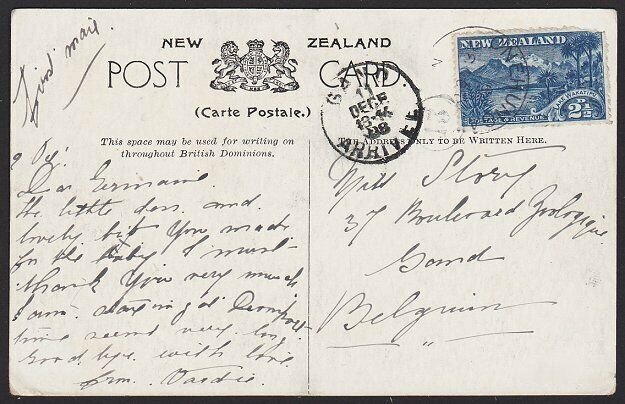 First mail
NEW ZEALAND
POST CARD.
(Carte Postale.)
This space may be used for writing on
throughout British Dominions.
THE ADDRESS ONLY TO BE WRITTEN HERE.
GAND
11
DECE
13-K
08
ARRIVEE
NEW ZEALAND
LAKE WAKATIPU
POSTAGE & REVENUE
2½
Dear Germaine
the little dess and
lovely bit you made
for the baby I must
thank you very much
I am staying at
time seems very long
good bye with love
from
Story
37 Boulevard Zoologique
Gand
Belgium